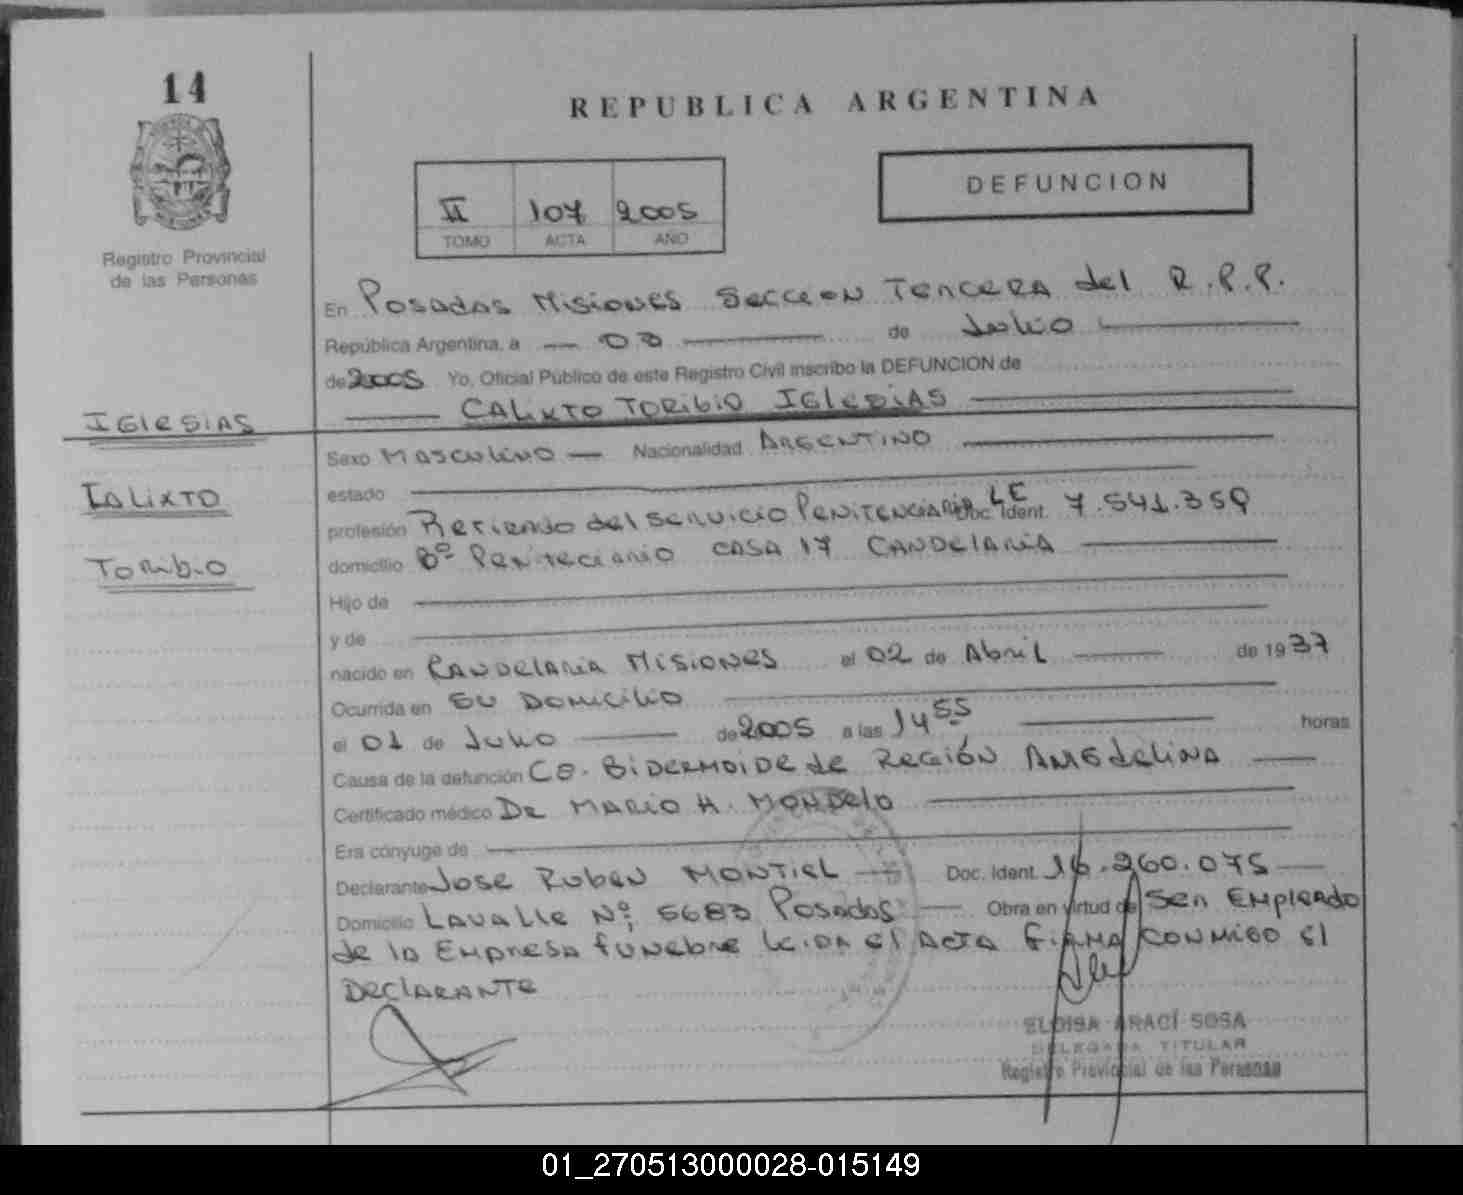 14
REPUBLICA ARGENTINA
DEFUNCION
II 107 2005
TOMO ACTA AÑO
Registro Provincial
de las Personas
En Posadas Misiones Seccion Tercera del R.P.P.
República Argentina, a 03 de Julio
de 2005 Yo, Oficial Público de este Registro Civil inscribo la DEFUNCION de
CALIXTO TORIBIO IGLESIAS
IGLESIAS
CALIXTO
TORIBIO
Sexo MASCULINO Nacionalidad ARGENTINO
estado
profesión Retirado del Servicio Penitenciario Doc. Ident. LE 7.541.359
domicilio Bº Peniteciario CASA 17 CANDELARIA
Hijo de
y de
nacido en CANDELARIA MISIONES el 02 de Abril de 1937
Ocurrida en SU DOMICILIO
el 01 de Julio de 2005 a las 14 55 horas
Causa de la defunción Bidermoide de Región
Certificado médico DR MARIO H. MONDELO
Era cónyuge de
Declarante JOSE RUBEN MONTIEL Doc. Ident. 16.260.075
Domicilio LAVALLE Nº 5683 Posadas Obra en virtud de Ser Empleado
de la Empresa funebre leida el ACTA FIRMA CONMIGO El
DECLARANTE
ELOISA ARACÍ SOSA
DELEGADA TITULAR
Registro Provincial de las Personas
01_270513000028-015149